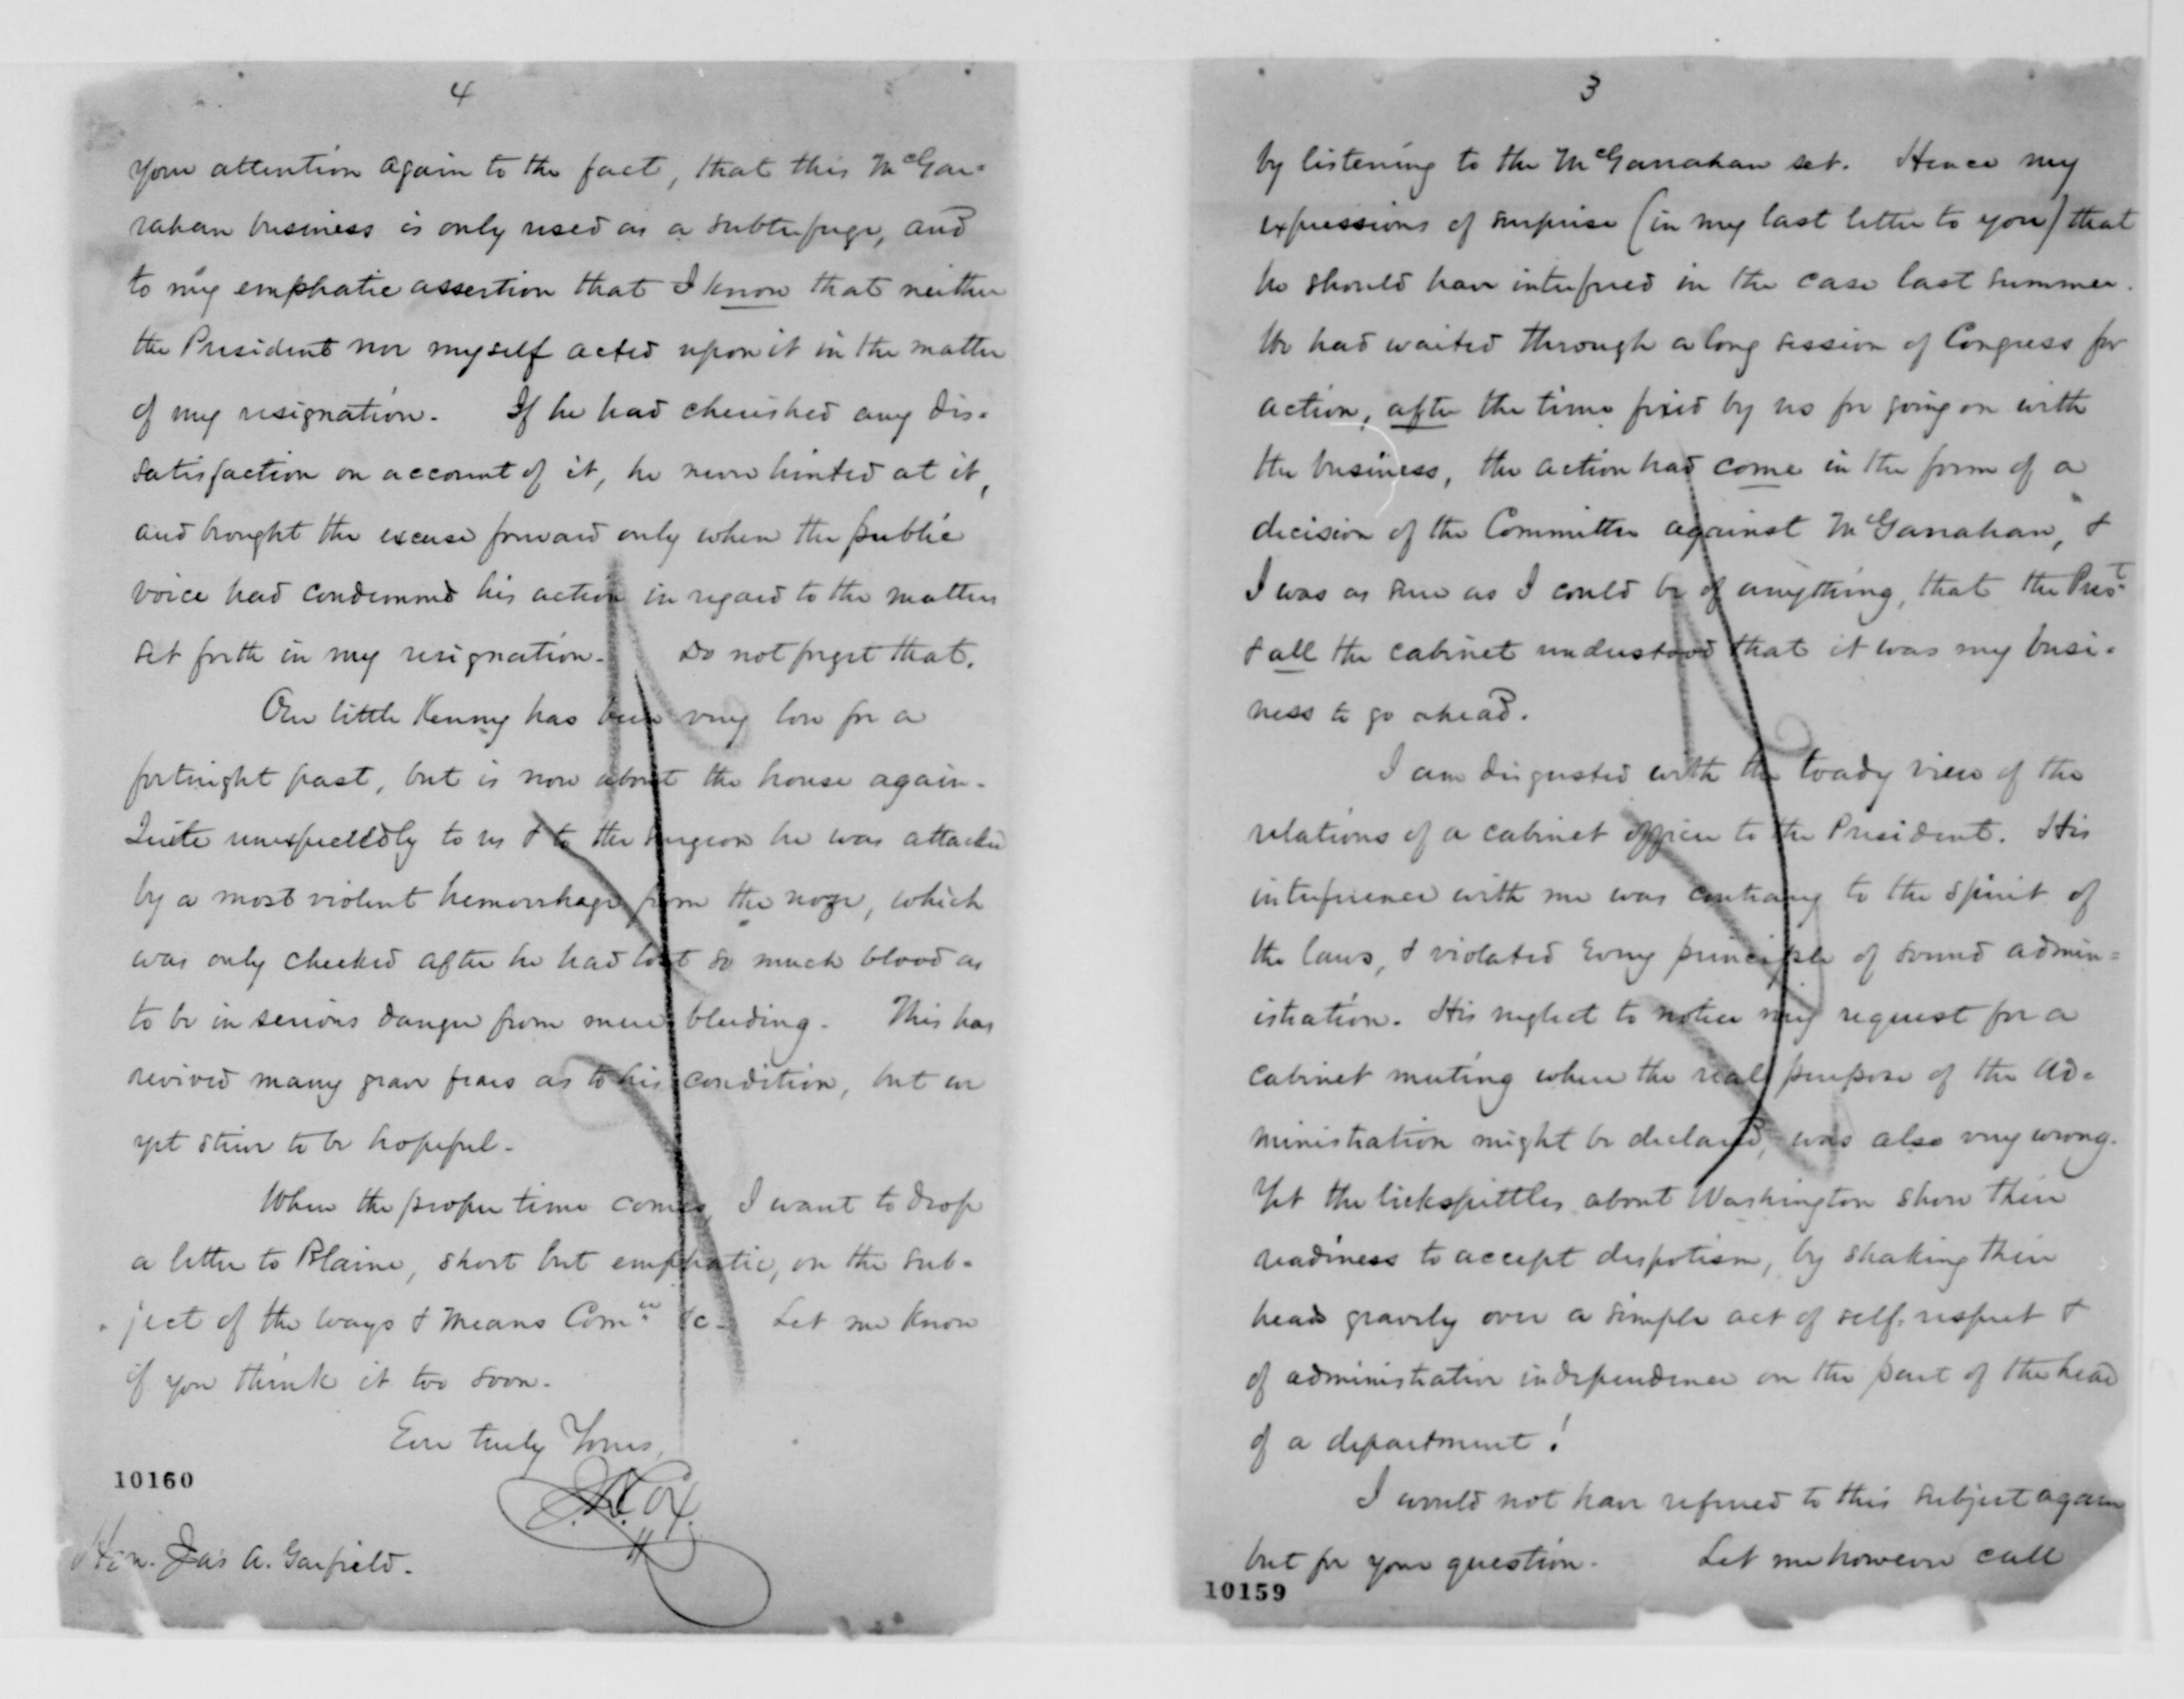 3
by listening to the McGarrahan set. Hence my
expressions of surprise (in my last letter to you) that
he should have interfered in the case last summer.
We had waited through a long session of Congress for
action, after the time fixed by us for going on with
the business, the action had come in the form of a
decision of the Committee against McGarrahan, &
I was as sure as I could be of anything, that the Prest
& all the cabinet understood that it was my busi-
ness to go ahead.
I am disgusted with the toady view of the
relations of a cabinet officer to the President. His
interference with me was contrary to the spirit of
the laws, & violated every principle of sound admin=
istration. His neglect to notice my request for a
cabinet meeting when the real purpose of the ad-
ministration might be declared, was also very wrong.
Yet the lickspittles about Washington show their
readiness to accept despotism, by shaking their
heads gravely over a simple act of self-respect &
of administrative independence on the part of the head
of a department!
I would not have referred to this subject again
but for your question. Let me however call
10159
4
your attention again to the fact, that this McGar-
rahan business is only used as a subterfuge, and
to my emphatic assertion that I know that neither
the President nor myself acted upon it in the matter
of my resignation. If he had cherished any dis-
satisfaction on account of it, he never hinted at it,
and brought the excuse forward only when the public
voice had condemned his action in regard to the matters
set forth in my resignation. Do not forget that.
Our little Kenny has been very low for a
fortnight past, but is now about the house again.
Quite unexpectedly to us & to the surgeon he was attacked
by a most violent hemorrhage from the nose, which
was only checked after he had lost so much blood as
to be in serious danger from mere bleeding. This has
revived many grave fears as to his condition, but we
yet strive to be hopeful.
When the proper time comes I want to drop
a letter to Blaine, short but emphatic, on the sub-
ject of the ways & means Comee &c. Let me know
if you think it too soon.
Ever truly Yours,
J. D. Cox.
10160
Hon. Jas A. Garfield.